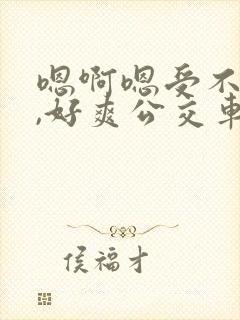 嗯啊嗯受不
,好爽公交车
侯福才